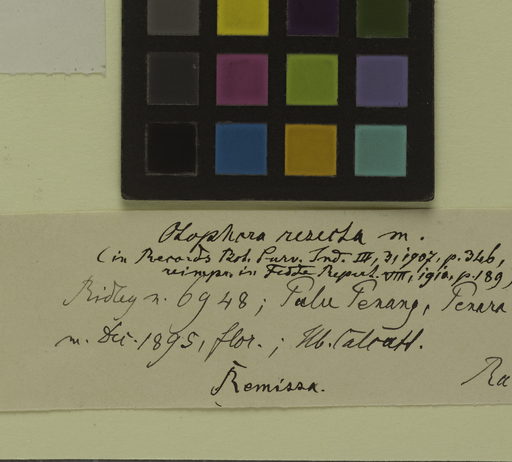 Otophora resecta m.
(in Records Bot. Surv. Ind. III, 3, 1907, p. 346,
reimpr. in Fedde Repert. VIII, 1910, p. 189)
Ridley n. 6948; Pulu Penang, Penara
m. Dec. 1895, flor.; Hb. Calcutt.
Remissa.
Ra